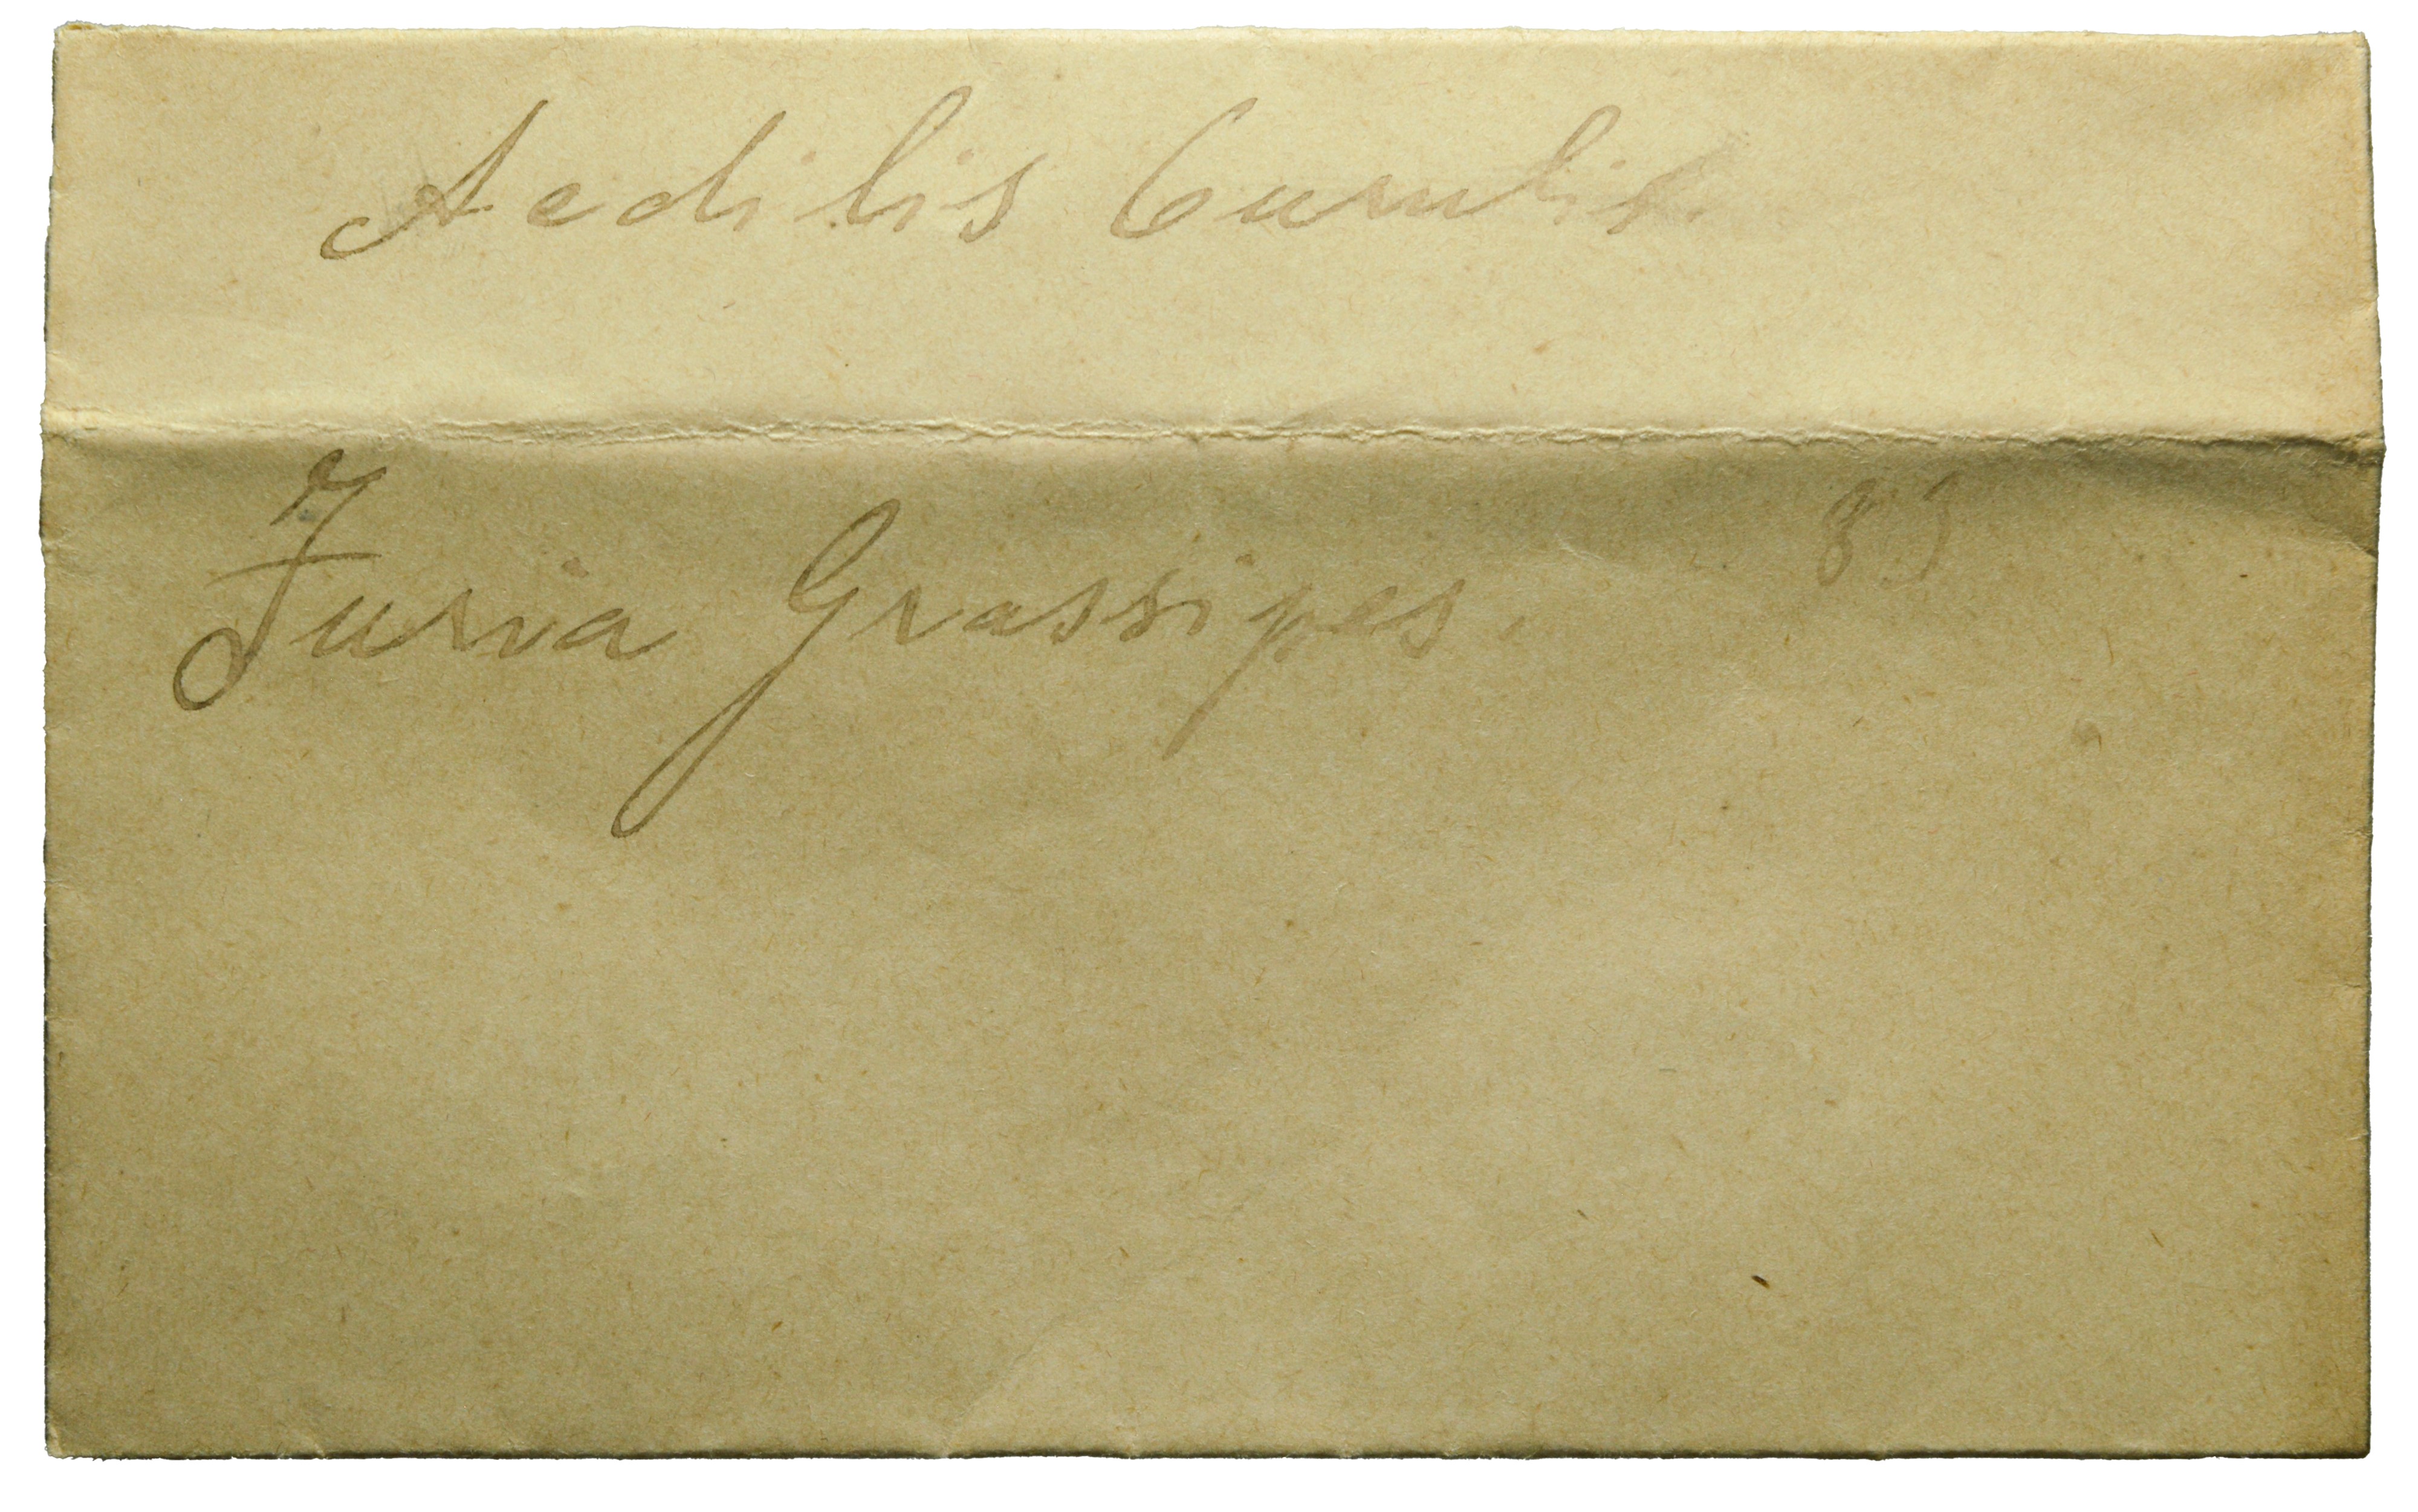 Aedilis Curulis
Furia Grassipes.